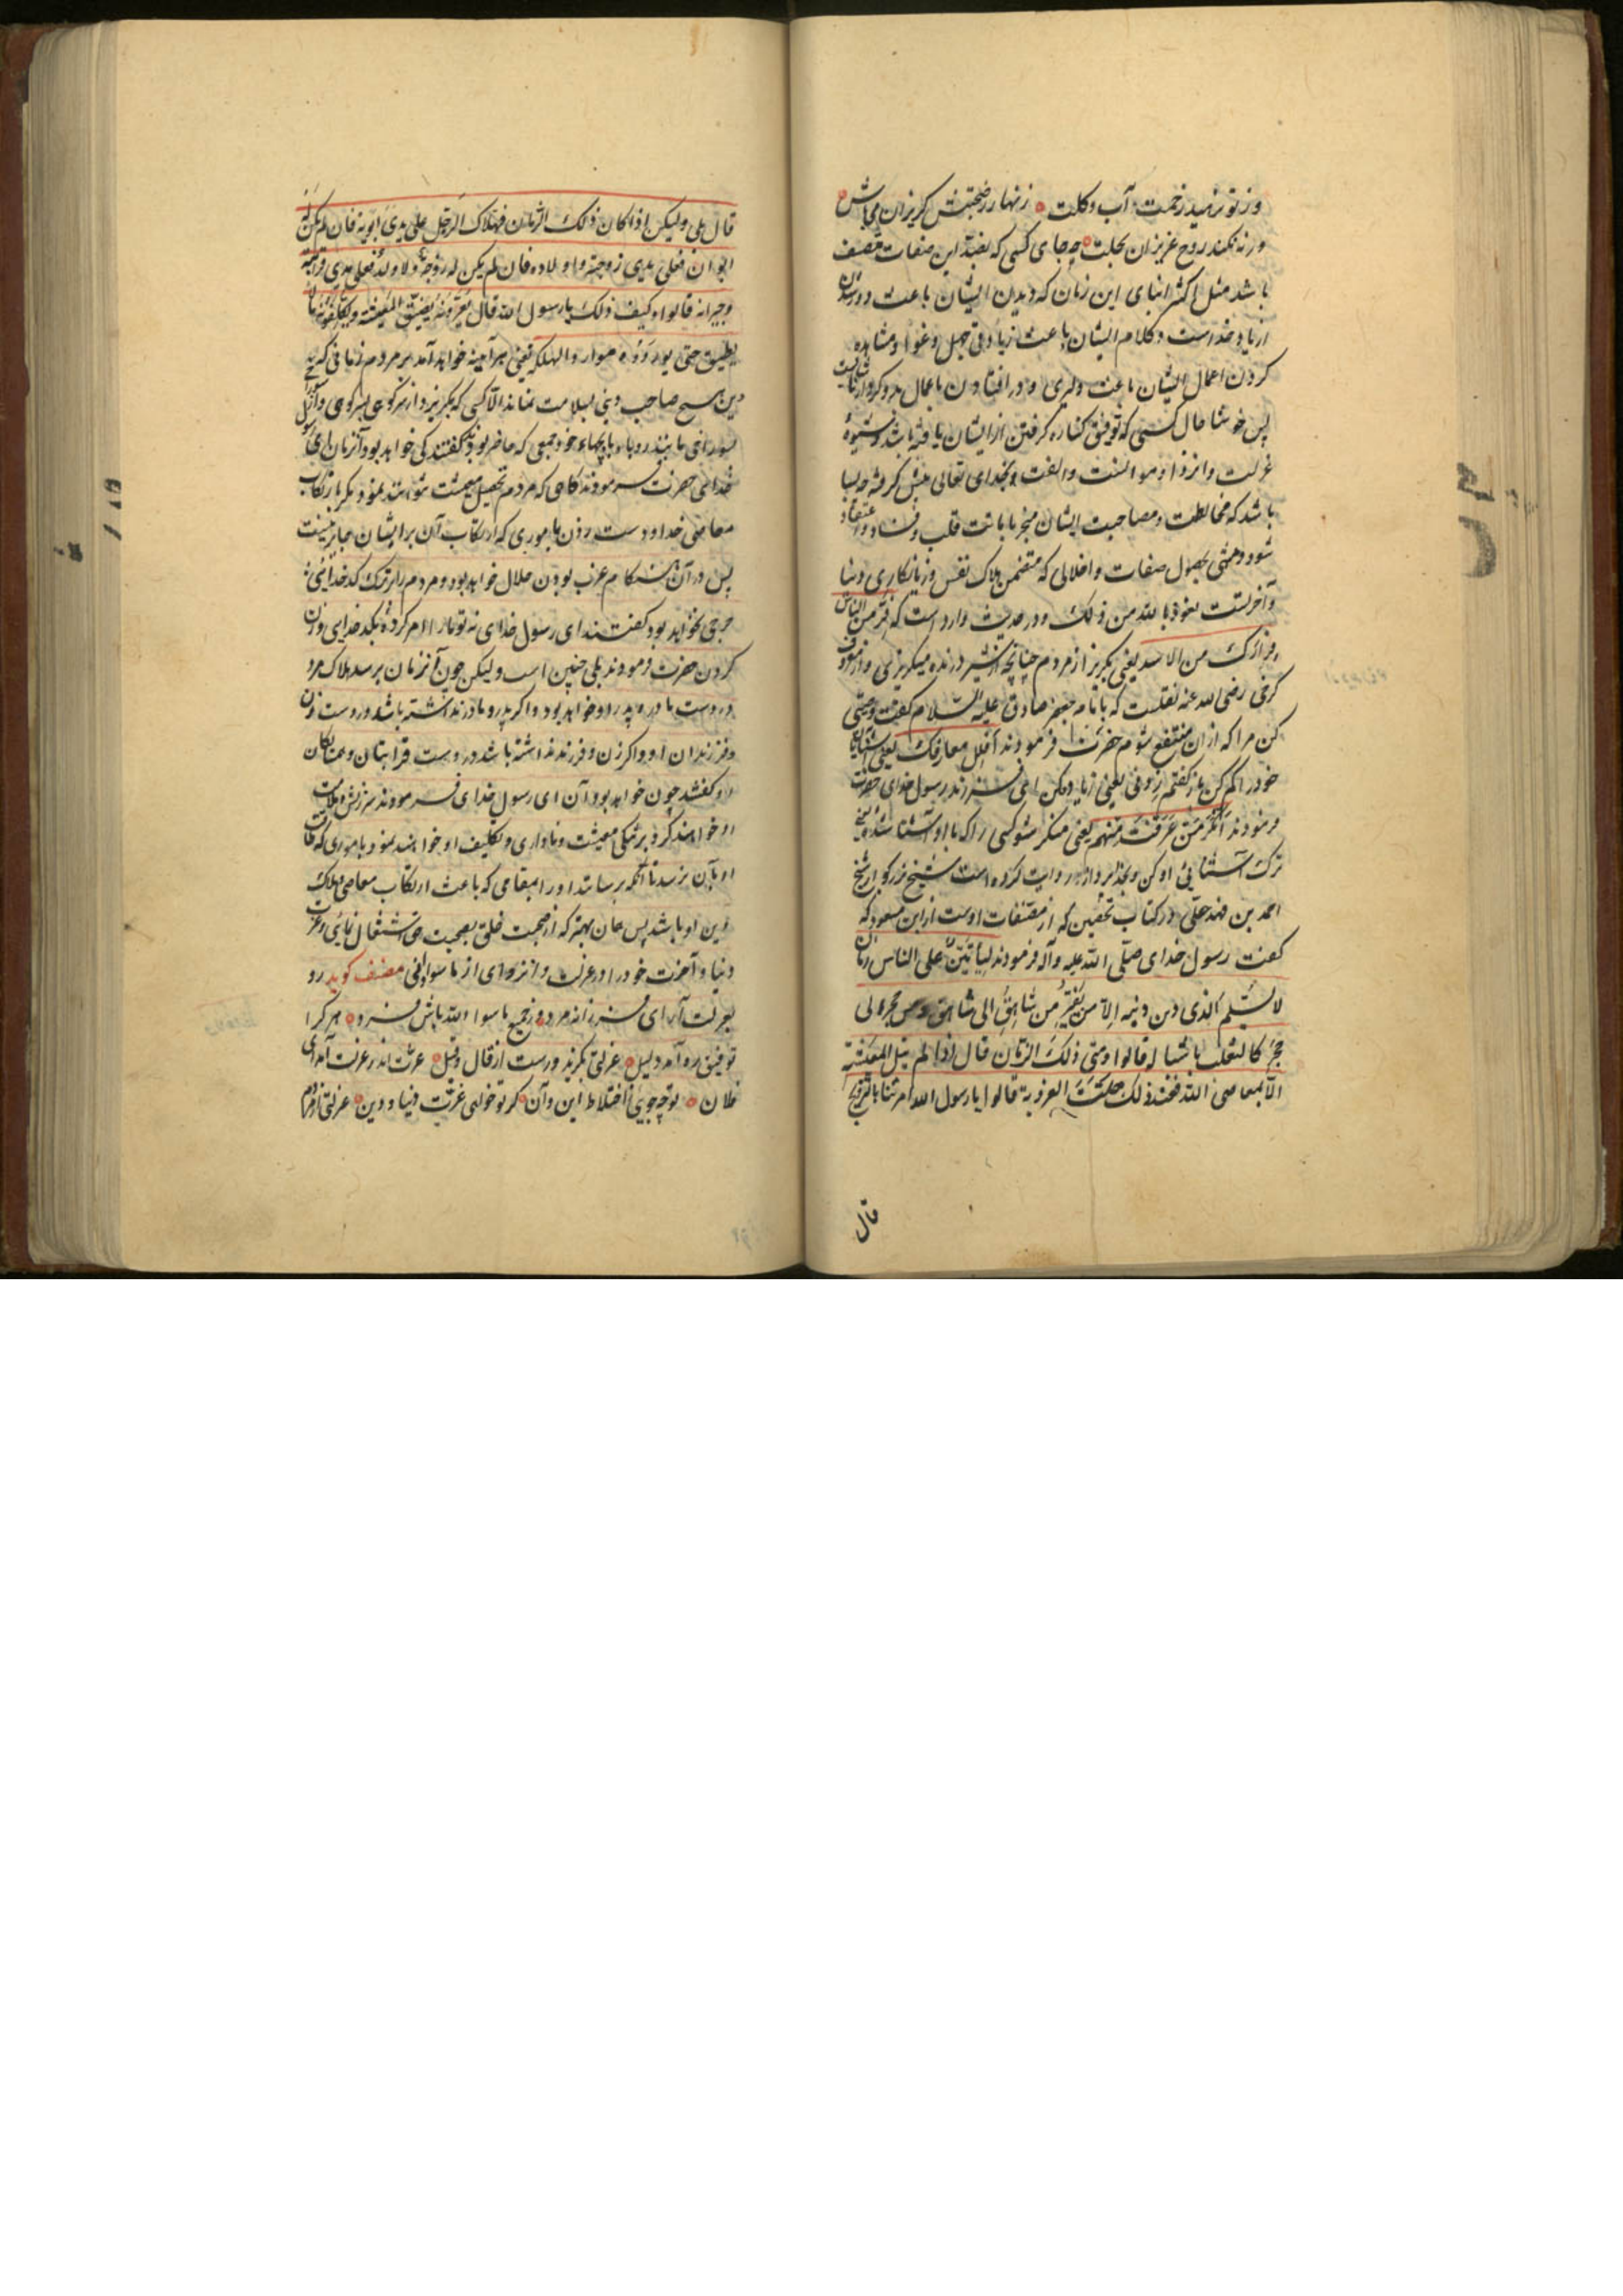 وز تو نرمید زحمت آب و گلت ه زنهار ز صحبتش گریزان میباش ه
ورنه نکند روح عزیزان بحلت ه چه جای کسی که بضد این صفات متصف
باشد مثل اکثر ابنای این زمان که دیدن ایشان باعث دور شدن
از یاد خداست و کلام ایشان باعث زیادتی جهل و غوا و مشاهده
کردن اعمال ایشان باعث دلیری و در افتادن باعمال بد و کردار
پس خوشا حال کسی که توفیق کناره گرفتن از ایشان یافته باشد و شیوهٔ
عزلت و انزوا و موانست و الفت بخدای تعالی پیش گرفته چه بسا
باشد که مخالطت و مصاحبت ایشان منجر باماتت قلب و فساد اعتقاد
شود و منتهی بحصول صفات و اخلاقی که متضمن هلاک نفس و زیانکاری دنیا
و آخرتست نعوذ بالله من ذلک و در حدیث وارد است که فر من الناس
فرارک من الاسد یعنی بگریز از مردم چنانچه از شیر درنده میگریزی و از معروف
کرخی رضی الله عنه نقلست که بامام جعفر صادق علیه السلام گفت وصیتی
کن مرا که از ان منتفع شوم حضرت فرمودند اقلل معارفک یعنی آشنایان
خود را کم کن باز گفتم زدنی یعنی زیاده کن ای فرزند رسول خدای حضرت
فرمودند انکر من عرفت منهم یعنی منکر شو کسی را که با او آشنا شده یعنی
ترک آشنائی او کن و روایت کرده است شیخ بزرگوار شیخ
احمد بن فهد حلی در کتاب تحصین که از مصنفات اوست از ابن مسعود که
گفت رسول خدای صلی الله علیه وآله فرمودند لیأتین علی الناس زمان
لا یسلم الذی دین دینه الا من یفر من شاهق الی شاهق و من حجر الی
حجر کالثعلب باشباله قالوا و متی ذلک الزمان قال اذا لم ینل المعیشة
الا بمعاصی الله فعند ذلک حلت العزوبة قالوا یا رسول الله امرتنا بالتزویج
قال
قال بلی ولیکن اذا کان ذلک الزمان فهلاک الرجل علی یدی ابویه فان لم یکن له
ابوان فعلی یدی زوجته و اولاده فان لم یکن له زوجة ولا ولد فعلی یدی قرابته
وجیرانه قالوا و کیف ذلک یا رسول الله قال یعیرونه بضیق المعیشة ویکلفونه مالا
یطیق حتی یوردوه موارد الهلکه یعنی هر آینه خواهد آمد بر مردم زمانی که
دین هیچ صاحب دینی بسلامت نماند الا کسی که بگریزد از سر کوهی بسر کوهی و از
سوراخی مانند روباه با بچهاء خود جمعی که حاضر بودند گفتند کی خواهد بود آنزمان ای رسول
خدای حضرت فرمودند گاهی که مردم تحصیل معیشت نتوانند نمود مگر بارتکاب
معاصی خدا و دست زدن باموری که ارتکاب آن بر ایشان جایز نیست
پس در آن هنگام عزب بودن حلال خواهد بود و مردم را در ترک کدخدائی
حرجی نخواهد بود گفتند ای رسول خدای نه تو ما را امر کرده بکدخدایی و زن
کردن حضرت فرمودند بلی چنین است ولیکن چون آنزمان برسد هلاک مرد
در دست مادر و پدر او خواهد بود و اگر پدر و مادر نداشته باشد در دست زن
و فرزندان او و اگر زن و فرزند نداشته باشد در دست قرابتان و همسایگان
او گفتند چون خواهد بود آن ای رسول خدای فرمودند سرزنش و ملامت
او خواهند کرد بر تنگی معیشت و ناداری و تکلیف او خواهند نمود باموری که طاقت
او بآن نرسد تا آنکه برسانند او را بمقامی که باعث ارتکاب معاصی و هلاک
دین او باشد پس همان بهتر که از صحبت خلق بصحبت حق اشتغال نمائی و عزت
دنیا و آخرت خود را در عزلت و انزوای از ما سوا دانی مصنف گوید رو
بعزلت آر ای فرزانه مرد ه وز جمیع ما سوا الله باش فرد ه هر کرا
توفیق ره آمد دلیل ه عزلتی بگزید و رست از قال و قیل ه عزت اندر عزلت آمد ای
فلان ه تو چه جویی اختلاط این و آن ه گر تو خواهی عزت دنیا و دین ه عزلتی از مردم